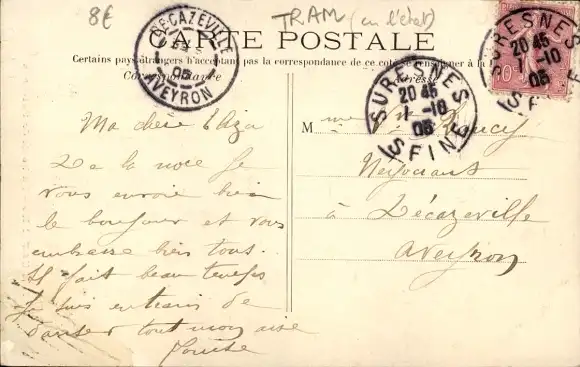 8€
TRAM (en l'état)
CARTE POSTALE
Certains pays étrangers n'acceptant pas la correspondance de ce côté se renseigner à la
Correspondance
Adresse
DECAZEVILLE
05
AVEYRON
SURESNES
20 45
1 -10
05
SEINE
SURESNES
20 45
-10
05
SEINE
10c
Ma chère
De la noce je
vous envoie bien
le bonjour et vous
embrasse bien tous.
Il fait beau temps
Je suis entrain de
danser tout mon aise
Louise
M
Négociant
à Décazeville
Aveyron